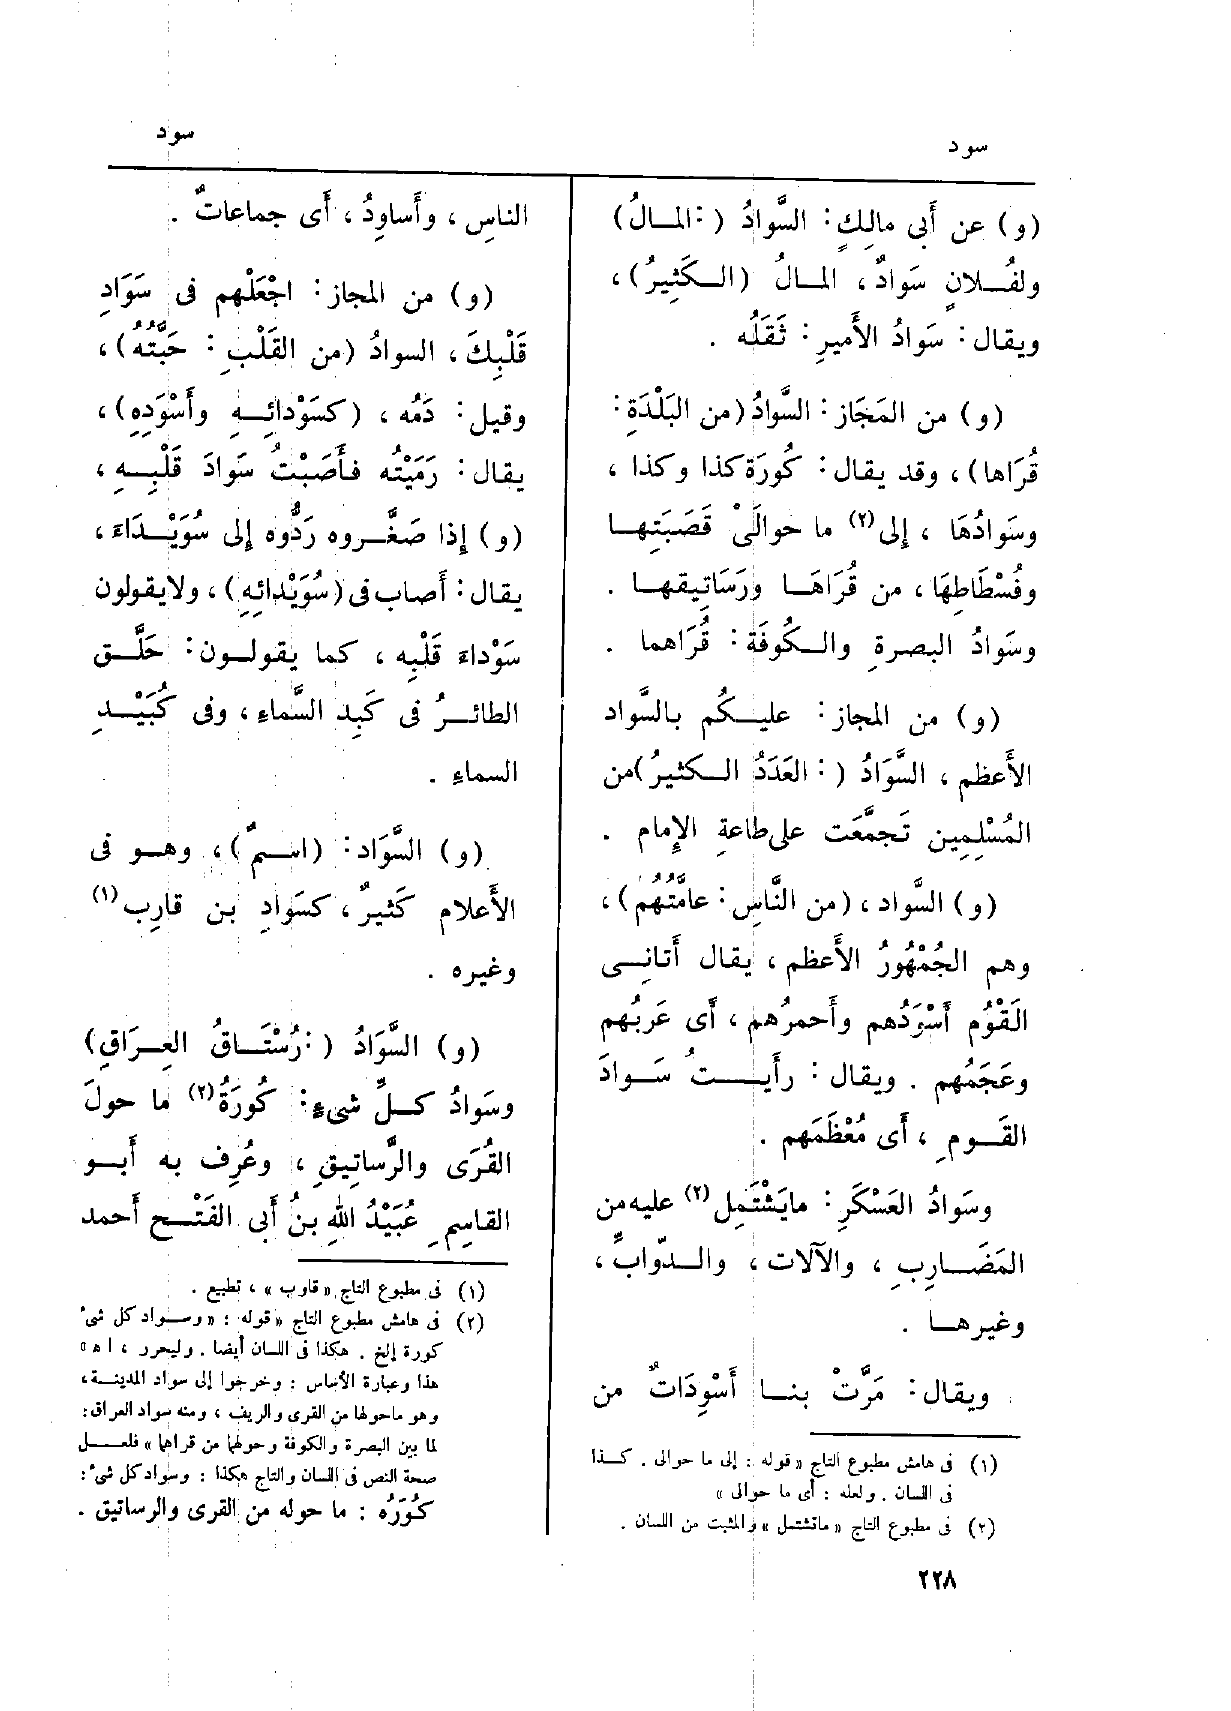 سود
سود
(و) عن أَبى مالِكٍ: السَّوادُ (: المـالُ)
ولفُـلانٍ سَوادٌ، المـالُ (الـكَثِيرُ)،
ويقال: سَوادُ الأَميرِ: ثَقَلُه .
(و) من المَجَاز: السَّوادُ (من البَلْدَةِ:
قُرَاها)، وقد يقال: كُورَة كذا وكذا،
وسَوادُهَا، إلى(٢) ما حوالَىْ قَصَبَتِهـا
وفُسْطَاطِهَا، من قُرَاهَـا ورَسَاتِيقِهـا .
وسَوادُ البصرةِ والـكُوفَة: قُرَاهما .
(و) من المجاز: عليـكُم بالسَّواد
الأَعظم، السَّوَادُ (: العَدَدُ الـكثيرُ) من
المُسْلِمِين تَجمَّعَت على طاعةِ الإِمام .
(و) السَّواد، (من النَّاسِ: عامَّتُهُم)،
وهم الجُمْهُورُ الأَعظم، يقال أَتانِـى
القَوْمُ أَسْوَدُهم وأَحمرُهم، أَى عَرَبُهم
وعَجَمُهم . ويقال: رأَيـتُ سَـوادَ
القَـومِ، أَى مُعْظَمَهم .
وسَوادُ العَسْكَرِ: ما يَشْتَمِل(٢) عليه من
المَضَـارِبِ، والآلات، والـدّوابِّ،
وغيرهـا .
ويقال: مَرَّتْ بنـا أَسْوِدَاتٌ من
(١) فى هامش مطبوع التاج «قوله: إلى ما حوالى . كـذا
فى اللسان . ولعله: أى ما حوالى»
(٢) فى مطبوع التاج «ماتشتمل» والمثبت من اللسان .
الناسِ، وأَساوِدُ، أَى جماعاتٌ .
(و) من المجاز: اجْعَلْهم فى سَوَادِ
قَلْبِكَ، السوادُ (من القَلْبِ: حَبَّتُهُ)،
وقيل: دَمُه، (كسَوْدائِـهِ وأَسْوَدِهِ)،
يقال: رَمَيْتُه فأَصَبْتُ سَوادَ قَلْبِـهِ،
(و) إذا صَغَّـروه رَدُّوه إلى سُوَيْـدَاءَ،
يقال: أَصاب فى (سُوَيْدائِه)، ولا يقولون
سَوْداءَ قَلْبِه، كما يقولـون: حَلَّـق
الطائـرُ فى كَبِد السَّماءِ، وفى كُبَيْـدِ
السماءِ .
(و) السَّوَاد: (اسـمٌ)، وهـو فى
الأَعلام كَثِيرٌ، كسَوادِ بن قارِب(١)
وغيره .
(و) السَّوَادُ (: رُسْتَـاقُ العِـراقِ)
وسَوادُ كـلِّ شىءٍ: كُورَةُ(٢) ما حولَ
القُرَى والرَّساتِيقِ، وعُرِف به أَبـو
القاسِمِ عُبَيْدُ اللهِ بنُ أَبى الفَتْـح أَحمد
(١) فى مطبوع التاج «قاوب»، تطبيع .
(٢) فى هامش مطبوع التاج «قوله: «وسـواد كل شىء
كورة إلخ . هكذا فى اللسان أيضا . وليحرر، ا هـ
هذا وعبارة الأساس: وخرجوا إلى سواد المدينـة،
وهو ما حولها من القرى والريف، ومنه سواد العراق:
لما بين البصرة والكوفة وحولها من قراها» فلعـل
صحة النص فى اللسان والتاج هكذا: وسواد كل شىء:
كُوَرُه: ما حوله من القرى والرساتيق .
٢٢٨